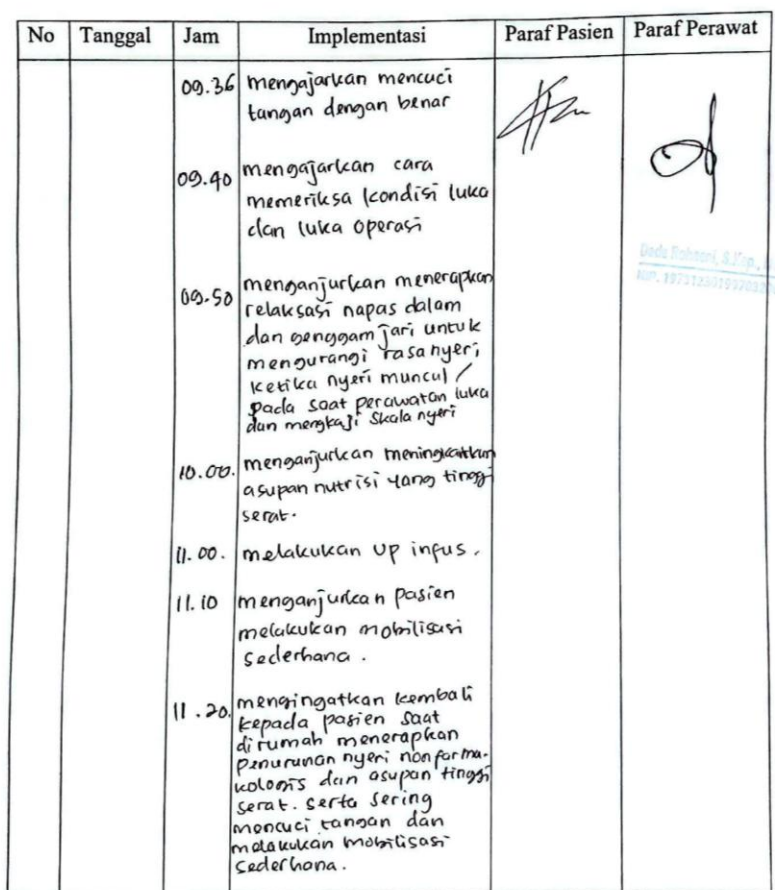 No Tanggal Jam Implementasi Paraf Pasien Paraf Perawat
09.36 mengajarkan mencuci
tangan dengan benar
09.40 mengajarkan cara
memeriksa kondisi luka
dan luka operasi
09.50 menganjurkan menerapkan
relaksasi napas dalam
dan genggam jari untuk
mengurangi rasa nyeri,
ketika nyeri muncul /
pada saat perawatan luka
dan mengkaji skala nyeri
10.00. menganjurkan meningkatkan
asupan nutrisi yang tinggi
serat.
11.00. melakukan up infus.
11.10 menganjurkan pasien
melakukan mobilisasi
sederhana.
11.20. mengingatkan kembali
kepada pasien saat
dirumah menerapkan
penurunan nyeri nonfarma-
kologis dan asupan tinggi
serat. serta sering
mencuci tangan dan
melakukan mobilisasi
sederhana.